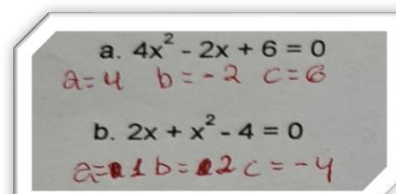 a. 4x² - 2x + 6 = 0
a=4 b=-2 c=6
b. 2x + x² - 4 = 0
a=1 b=2 c=-4